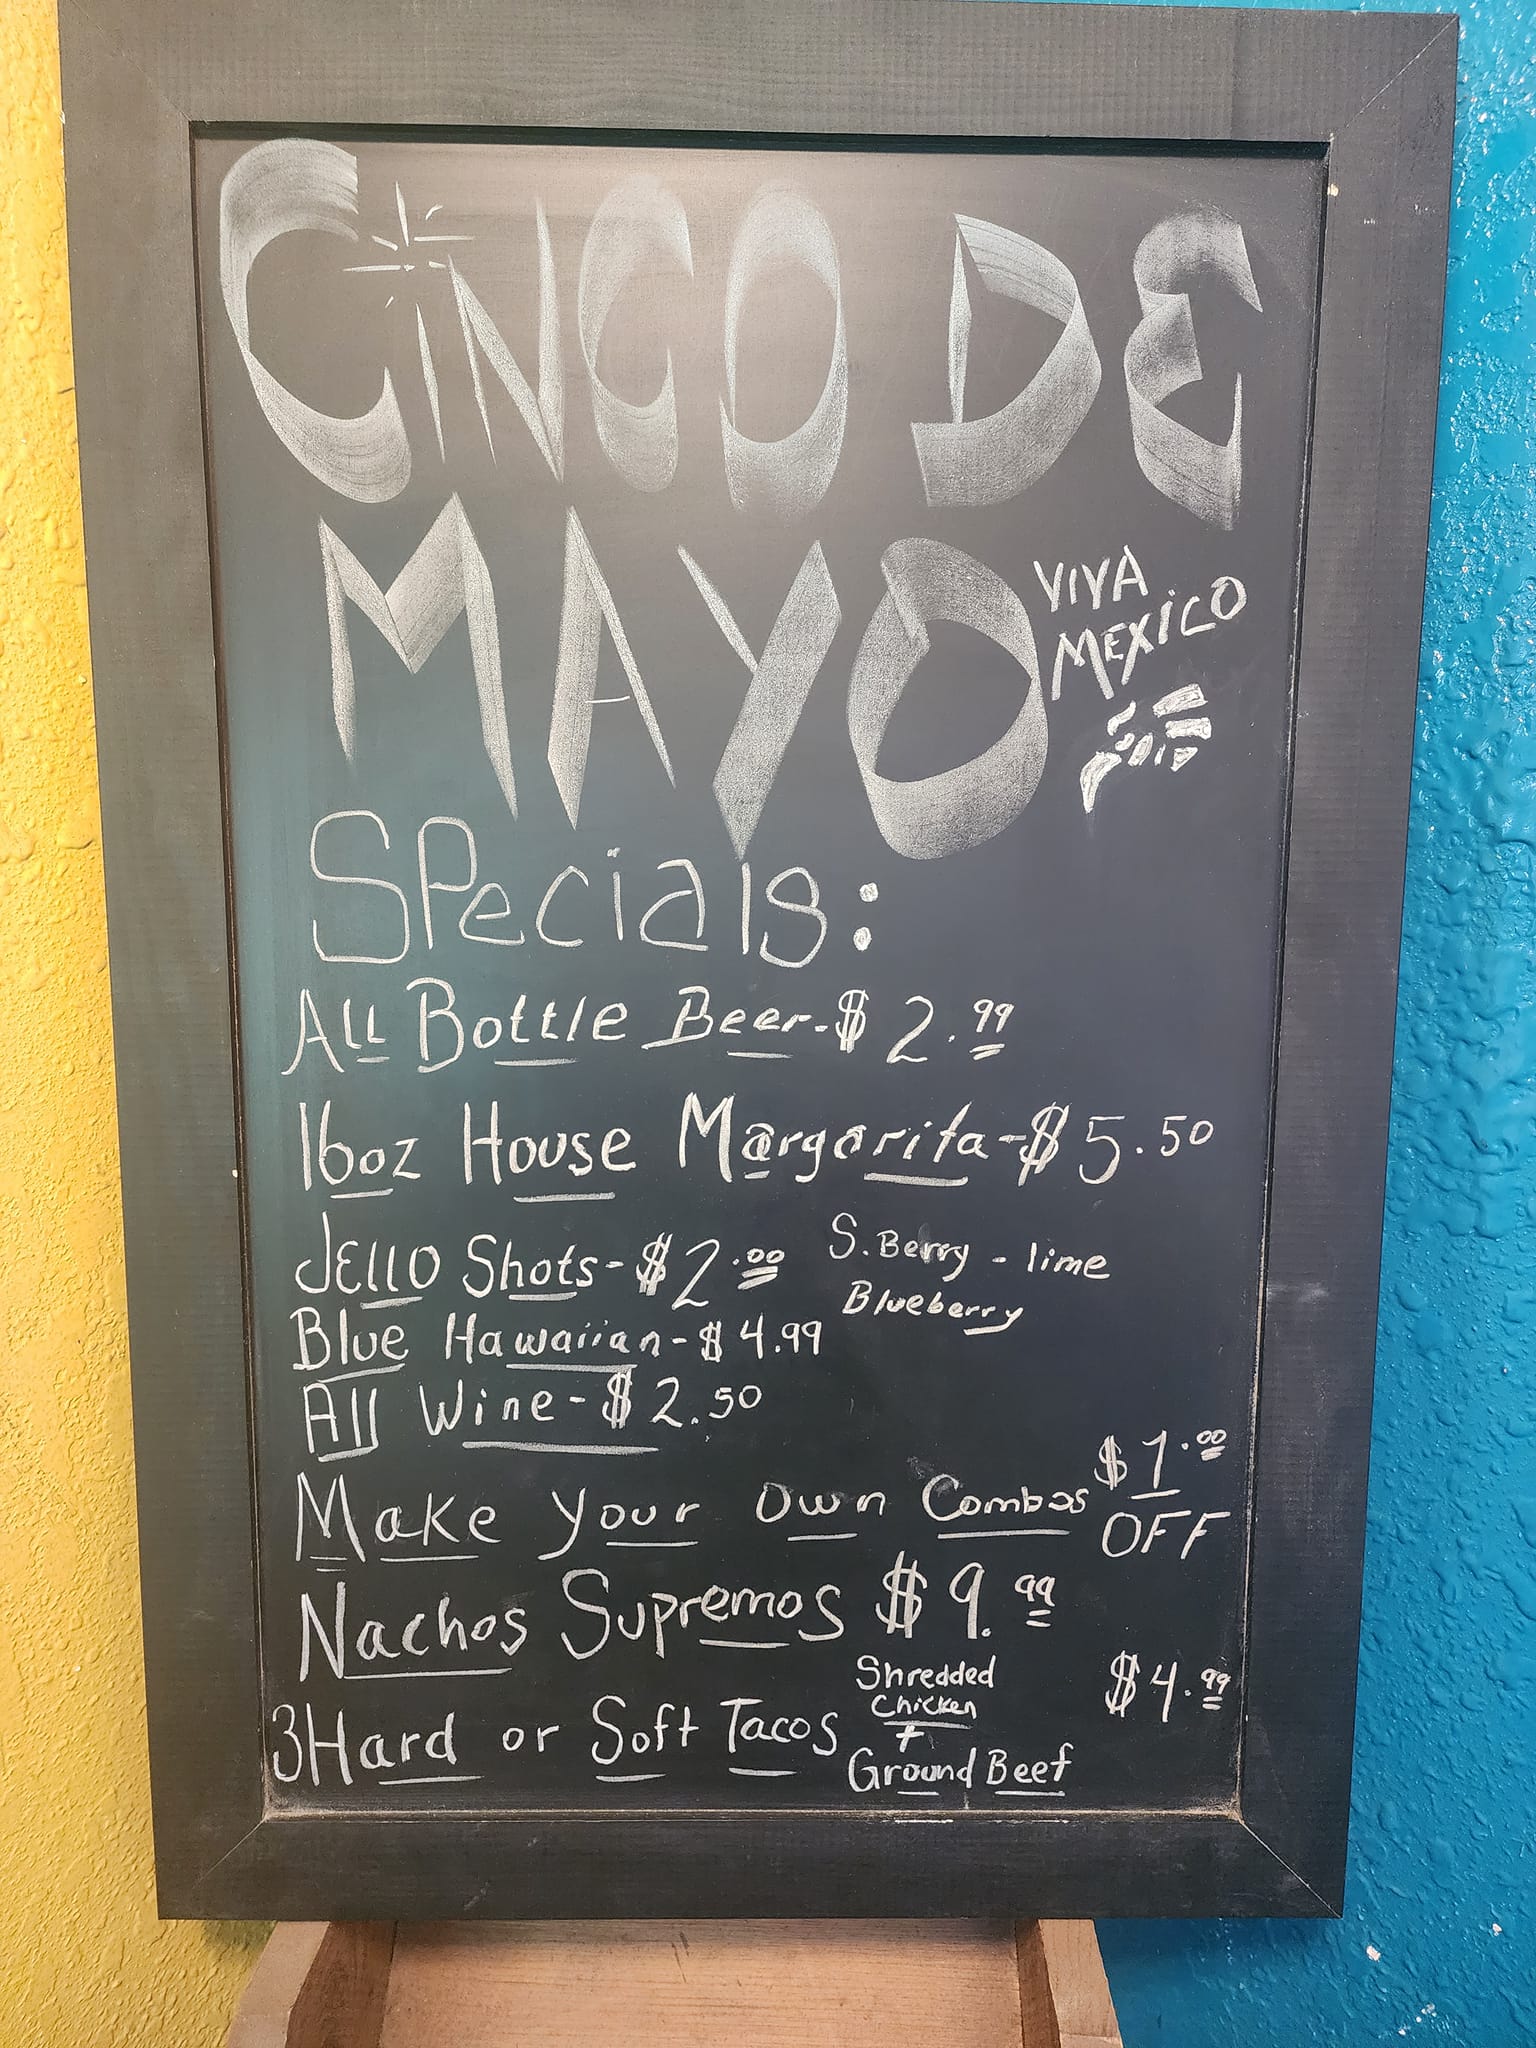 CiNCO DE
MAYO
VIVA
MEXiCO
SPecials:
All Bottle Beer-$ 2.99
16oz House Margarita-$ 5.50
JEllO Shots-$2.00
S.Berry - lime
Blueberry
Blue Hawaiian-$ 4.99
All Wine-$ 2.50
Make your own Combos
$1.00
OFF
Nachos Supremos $9.99
3Hard or Soft Tacos
Shredded
Chicken
+
Ground Beef
$4.99